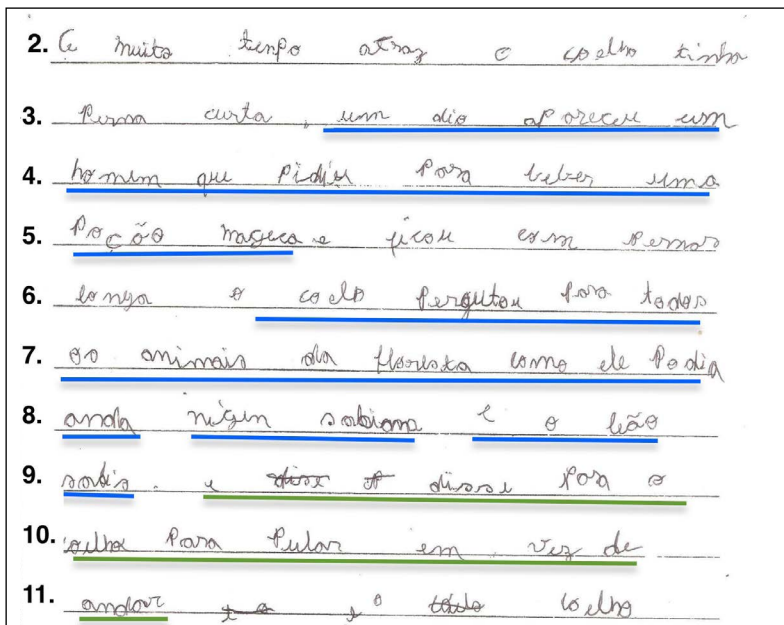 2. A muito tenpo atraz o coelho tinha
3. Perna curta, um dia apareceu um
4. homem que pidiu para beber uma
5. Poção mageca e ficou com pernas
6. longa o coelo pergutou para todos
7. os animais da floresta como ele Podia
8. anda nigen sabiam e o leão
9. sabia. e disse para o
10. coelho Para Pular em vez de
11. andar e o coelho